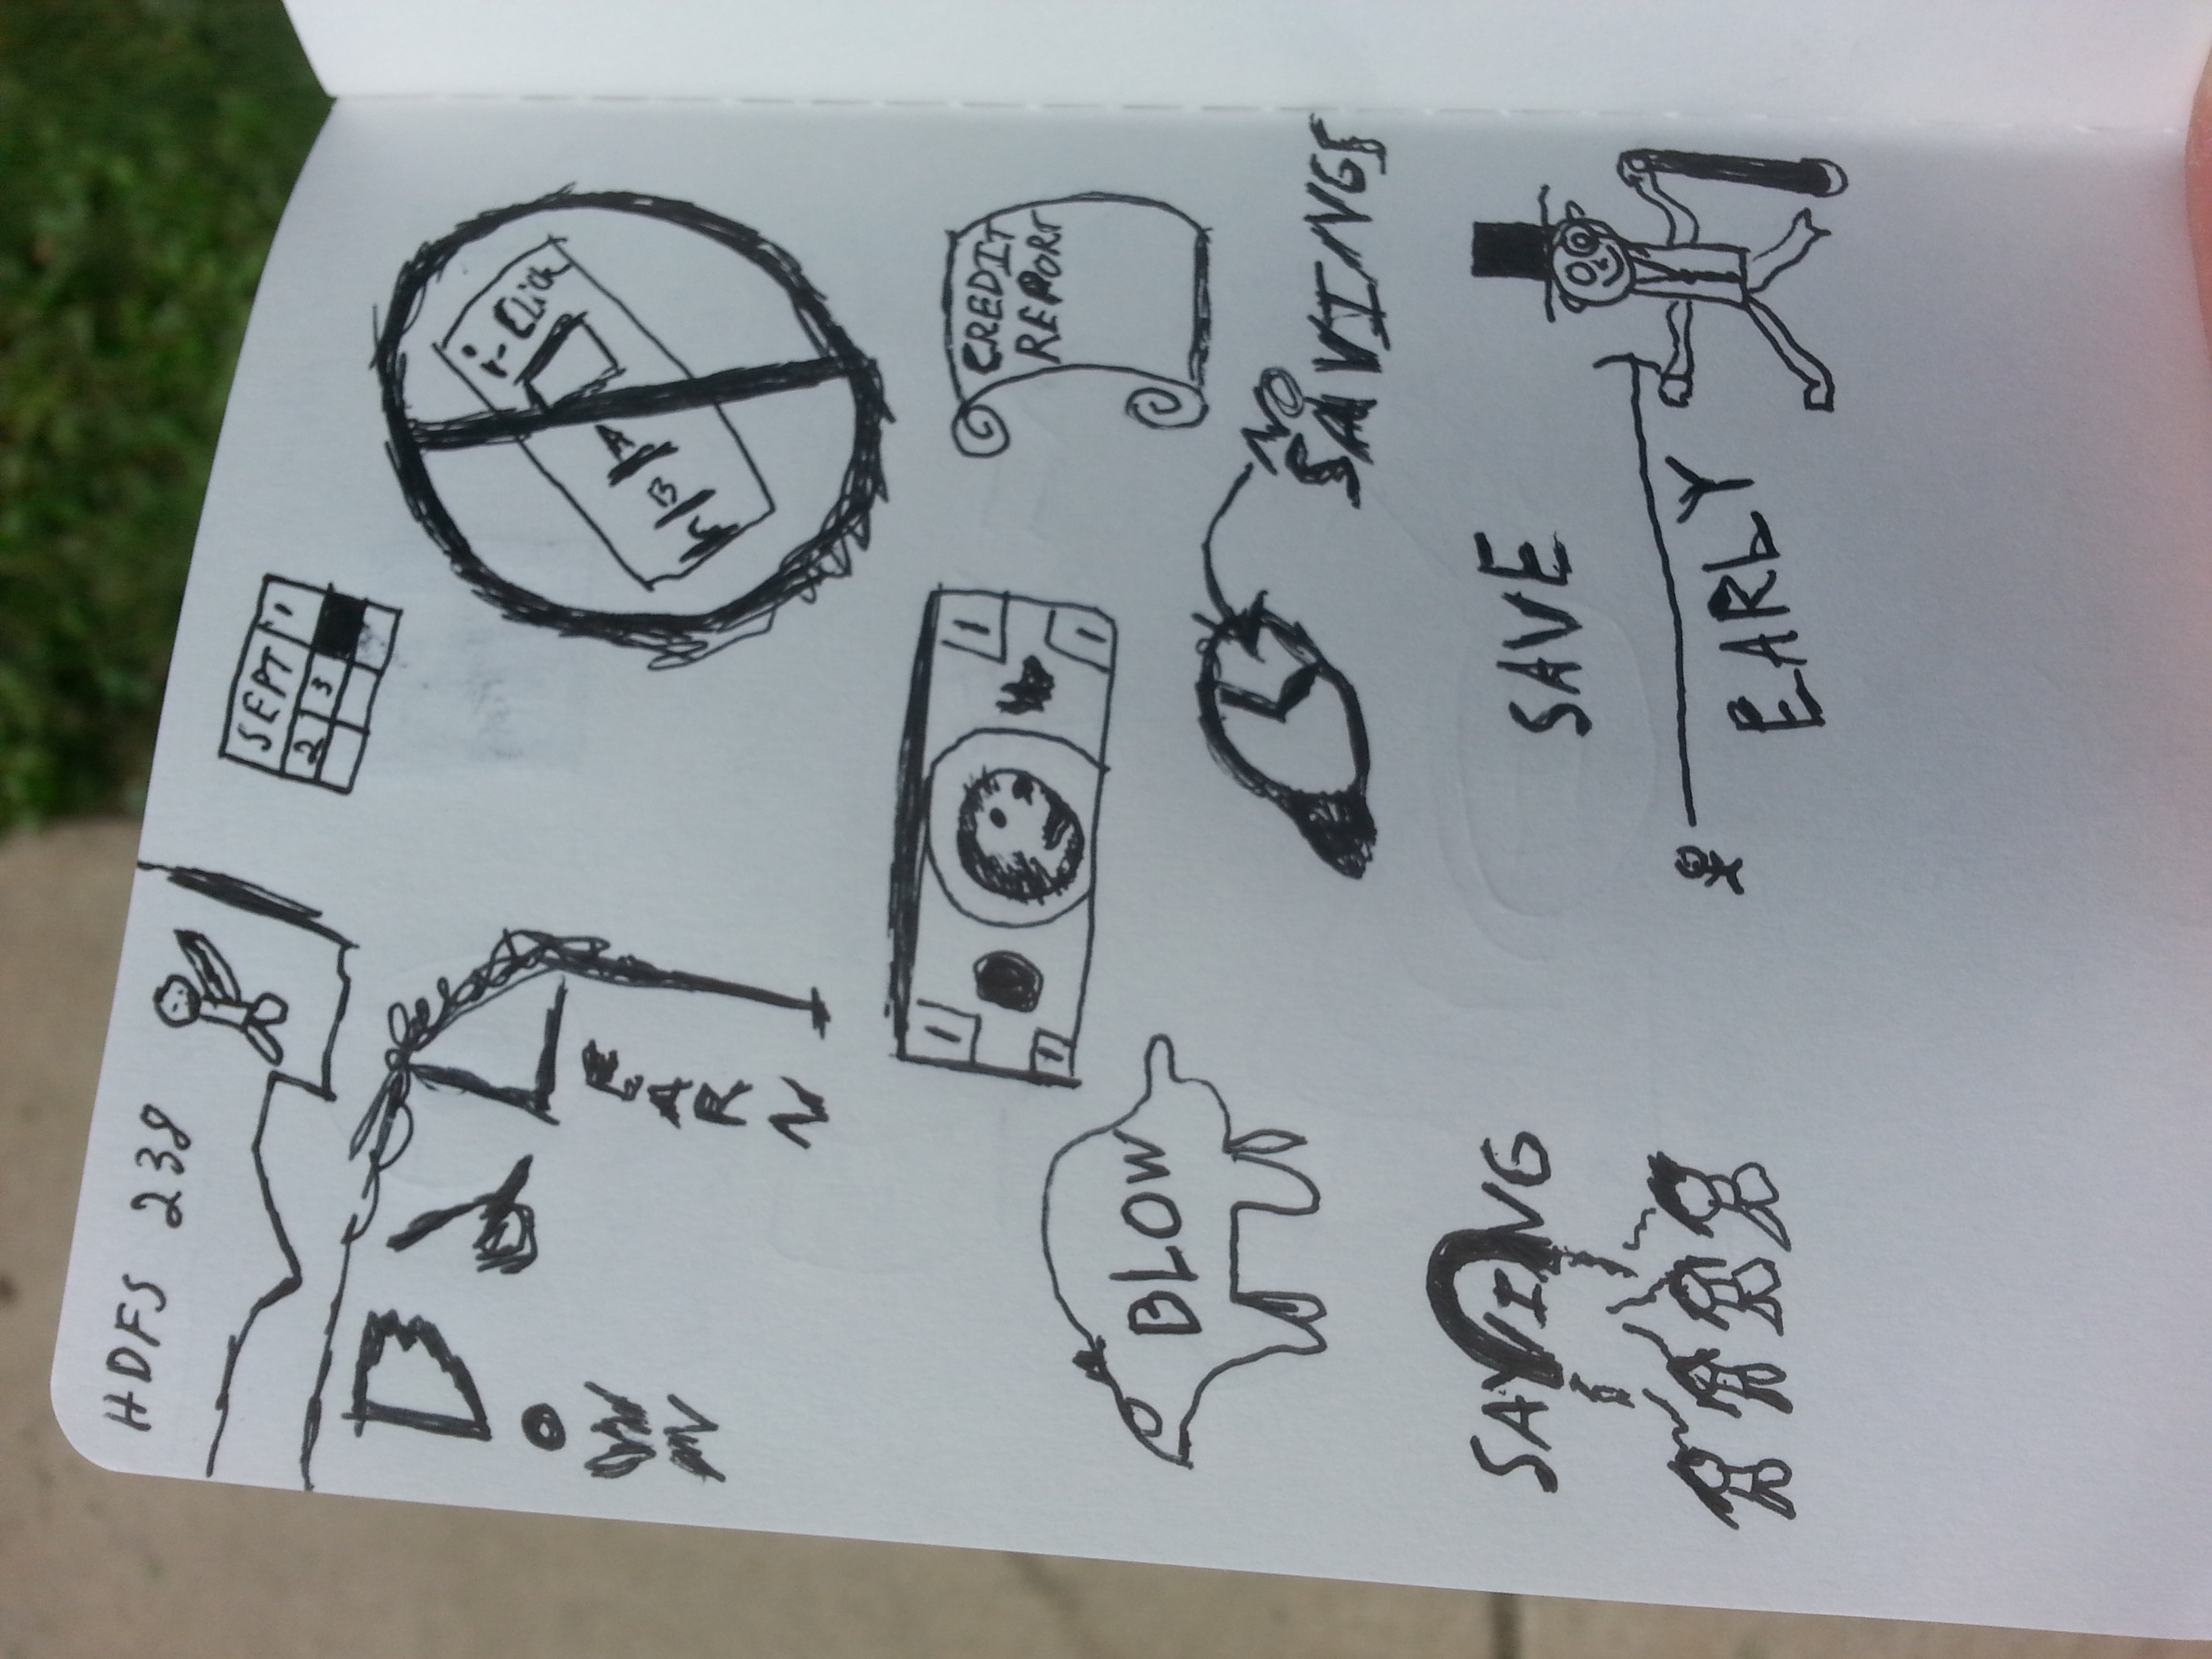 HDFS 238
SEPT 1
2 3
DOWN
&
LEARN
i-Click
A
B
1 1
1 1
CREDIT
REPORT
BLOW
NO
SAVINGS
SAVING
SAVE
EARLY